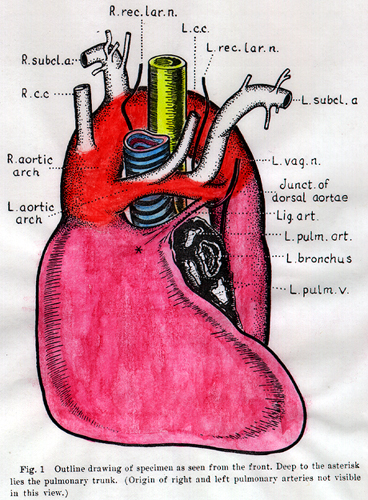 R. rec. lar. n.
L. c. c.
L. rec. lar. n.
R. subcl. a.
R. c. c
L. subcl. a
R. aortic
arch
L. aortic
arch
L. vag. n.
Junct. of
dorsal aortae
Lig. art.
L. pulm. art.
L. bronchus
L. pulm. v.
*
Fig. 1 Outline drawing of specimen as seen from the front. Deep to the asterisk
lies the pulmonary trunk. (Origin of right and left pulmonary arteries not visible
in this view.)